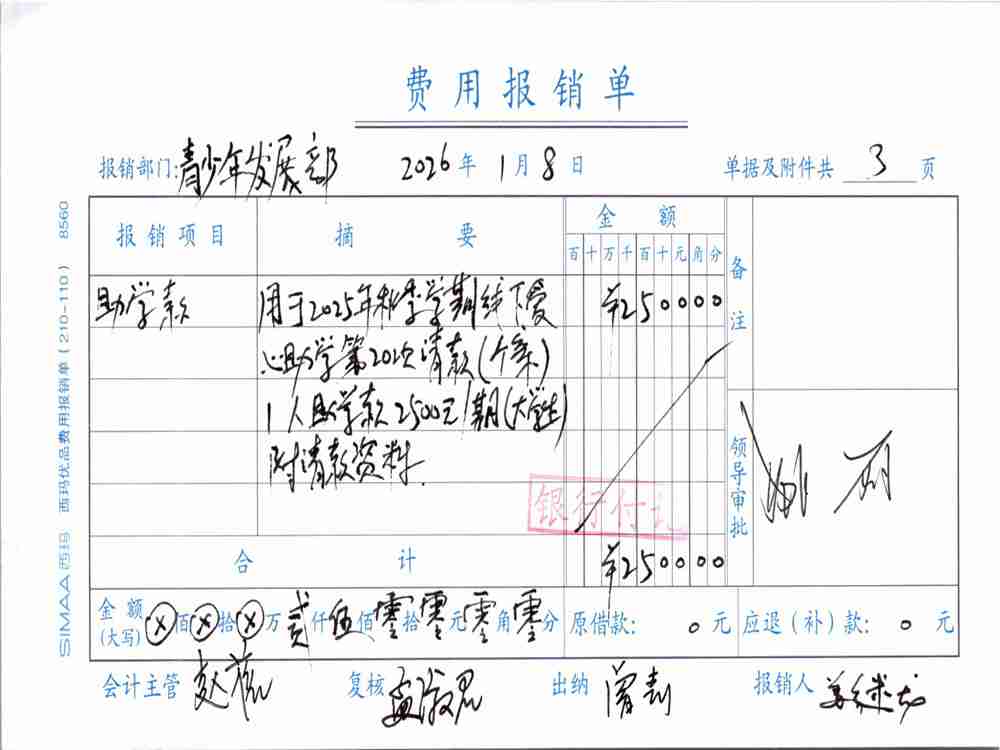 费用报销单
报销部门:青少年发展部 2026年1月8日 单据及附件共 3 页
报销项目 摘要 金额 备注
百十万千百十元角分
助学款 用于2025年秋季学期线下爱 ¥250000
心助学第20次请款(个案)
1人助学款2500元/期(大学生)
附请款资料.
银行付讫
领导审批
合计 ¥250000
金额(大写) ⊗佰⊗拾⊗万贰仟伍佰零拾零元零角零分 原借款: 0 元 应退(补)款: 0 元
会计主管 复核 出纳 曾志 报销人
SIMAA西玛 西玛优品费用报销单(210-110) 8560